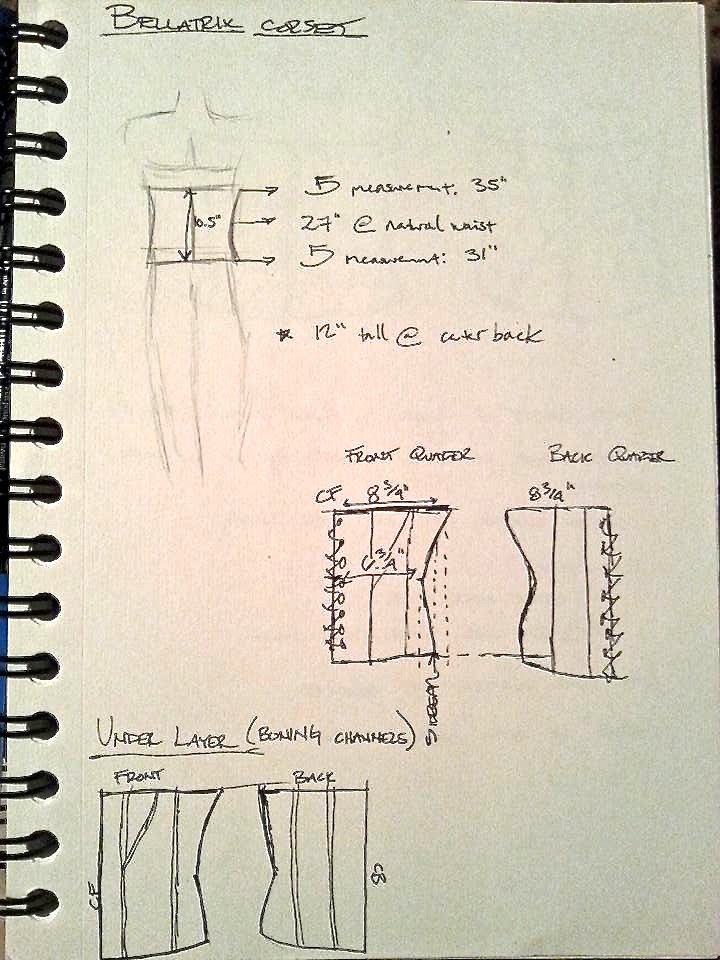 BELLATRIX CORSET
5 measurement. 35"
10.5"
27" @ natural waist
5 measurement: 31"
* 12" tall @ center back
FRONT QUATER
BACK QUATER
CF
8 3/4"
8 3/4"
6 3/4"
SIDESEAM
UNDER LAYER (BONING CHANNELS)
FRONT
BACK
CF
CB